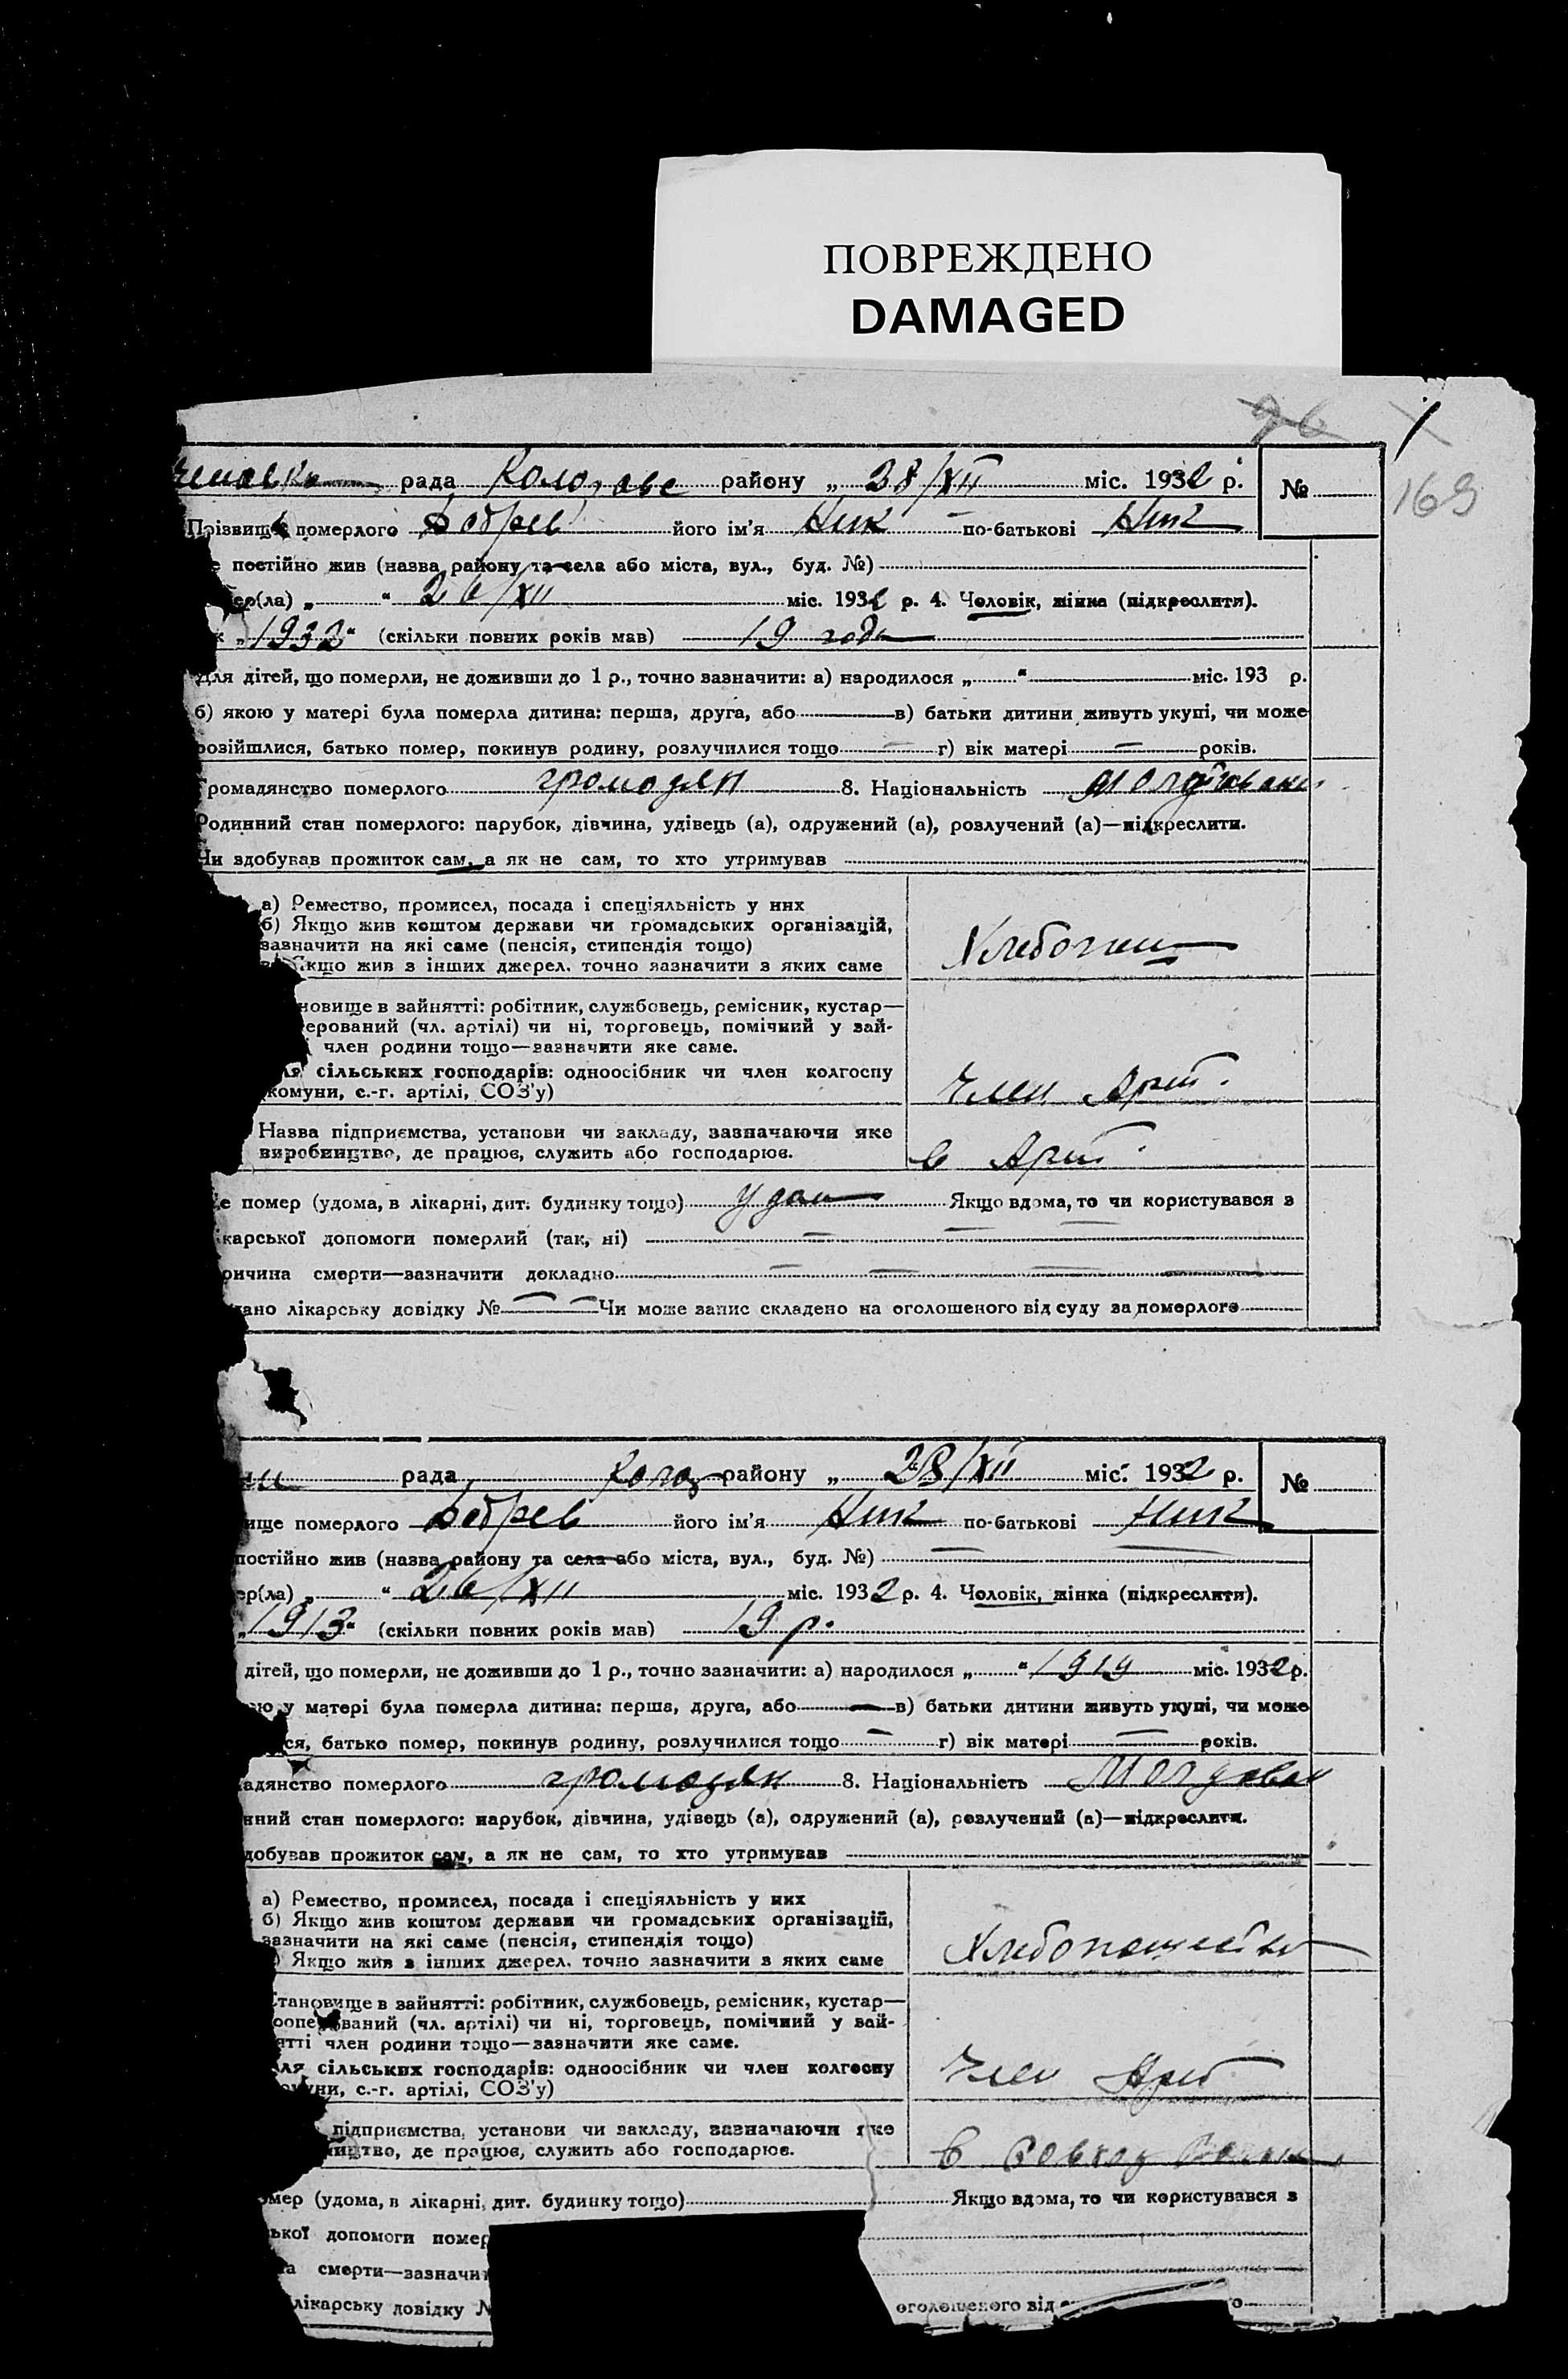 ПОВРЕЖДЕНО
DAMAGED
96
169
рада района „ 28/XII міс. 1932 р. №
Прізвище померлого Бобрев його ім'я Ник по-батькові Ник
постійно жив (назва району та села або міста, вул., буд. №)
ер(ла) „ “ 26/XII міс. 1932 р. 4. Чоловік, жінка (підкреслити).
к „1932“ (скільки повних років мав) 19 года
Для дітей, що померли, не доживши до 1 р., точно зазначити: а) народилося „ “ міс. 193 р.
б) якою у матері була померла дитина: перша, друга, або — в) батьки дитини живуть укупі, чи може
розійшлися, батько помер, покинув родину, розлучилися тощо — г) вік матері — років.
Громадянство померлого громодян 8. Національність
Родинний стан померлого: парубок, дівчина, удівець (а), одружений (а), розлучений (а)—підкреслити.
Чи здобував прожиток сам, а як не сам, то хто утримував
а) Ремество, промисел, посада і спеціяльність у них
б) Якщо жив коштом держави чи громадських організацій,
зазначити на які саме (пенсія, стипендія тощо)
в) Якщо жив з інших джерел, точно зазначити з яких саме
новище в зайнятті: робітник, службовець, ремісник, кустар—
ерований (чл. артілі) чи ні, торговець, помічний у зай-
член родини тощо—зазначити яке саме.
ля сільських господарів: одноосібник чи член колгоспу
комуни, с.-г. артілі, СОЗ'у)
Член Арт.
Назва підприємства, установи чи закладу, зазначаючи яке
виробництво, де працює, служить або господарює.
в Арт.
е помер (удома, в лікарні, дит. будинку тощо) удом Якщо вдома, то чи користувався з
ікарської допомоги померлий (так, ні) — — —
ричина смерти—зазначити докладно — — — —
дано лікарську довідку № — — Чи може запис складено на оголошеного від суду за померлого
рада Колоз району „ 28/XII міс. 1932 р. №
ище померлого Бобрев його ім'я Ник по-батькові Ник
постійно жив (назва району та села або міста, вул., буд. №) — —
ер(ла) „ “ 26/XII міс. 1932 р. 4. Чоловік, жінка (підкреслити).
„1913“ (скільки повних років мав) 19 р.
дітей, що померли, не доживши до 1 р., точно зазначити: а) народилося „ “ 1919 міс. 1932 р.
ю у матері була померла дитина: перша, друга, або — в) батьки дитини живуть укупі, чи може
ся, батько помер, покинув родину, розлучилися тощо — г) вік матері — років.
адянство померлого громодян 8. Національність Молдован
нний стан померлого: парубок, дівчина, удівець (а), одружений (а), розлучений (а)—підкреслити.
добував прожиток сам, а як не сам, то хто утримував
а) Ремество, промисел, посада і спеціяльність у них
б) Якщо жив коштом держави чи громадських організацій,
зазначити на які саме (пенсія, стипендія тощо)
) Якщо жив з інших джерел, точно зазначити з яких саме
Хлебопашество
Становище в зайнятті: робітник, службовець, ремісник, кустар—
коопераований (чл. артілі) чи ні, торговець, помічний у зай-
ятті член родини тощо—зазначити яке саме.
ля сільських господарів: одноосібник чи член колгоспу
комуни, с.-г. артілі, СОЗ'у)
Член Арт
підприємства, установи чи закладу, зазначаючи яке
ництво, де працює, служить або господарює.
в
омер (удома, в лікарні, дит. будинку тощо) Якщо вдома, то чи користувався з
ької допомоги помер
а смерти—зазначи
лікарську довідку № оголошеного від о